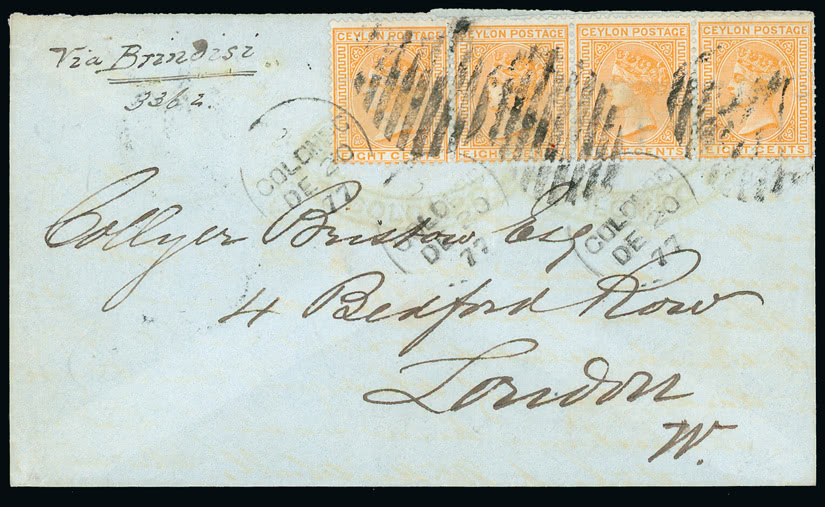 Via Brindisi
3362
CEYLON POSTAGE CEYLON POSTAGE CEYLON POSTAGE CEYLON POSTAGE
EIGHT CENTS EIGHT CENTS EIGHT CENTS EIGHT CENTS
COLOMBO
DE 20
77
COLOMBO
DE 20
77
COLOMBO
DE 20
77
Collyer Bristow Esq
4 Bedford Row
London
W.